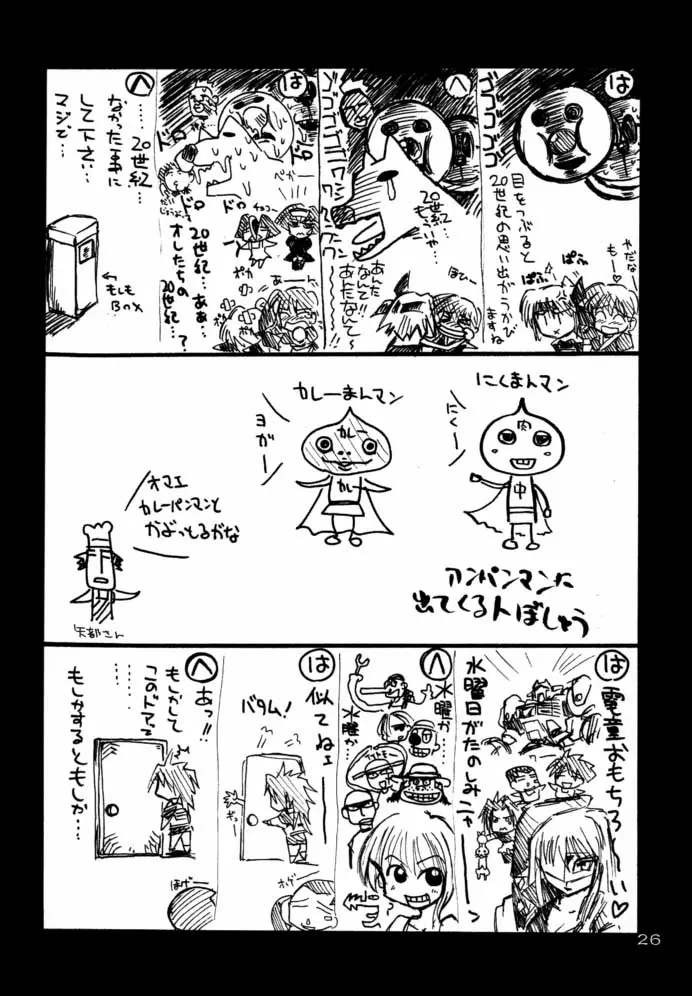 は
目をつぶると
20世紀の思い出がうかび
ますね
やだな
もー♡
ぱふ
ぱふ
ゴゴゴゴ
へ
ゴゴゴゴゴ
ワンワンワン
20世紀
もういや…
あんた
なんて!!
あんたなんて〜
ほひー
は
ドロ
ドロ
ドロ
ドロ
ぺかー
チュコー
ポカ
ポカ
あーん
20世紀…ああ…
オレたちの
20世紀…?
へ
……20世紀…
なかった事に
して下さい…
マジで…
←もしも
Box
にくまんマン
にくー
肉
中
カレーまんマン
ヨガー
カレー
カレー
オマエ
カレーパンマンと
かぶっとるがな
矢部さん
アンパンマンに
出てくる人ぼしゅう
は
電童おもちろーい♡
水曜日がたのしみニャーッ
へ
水曜か
水曜か
は
似てねェ
バタム!
ギュー
ホゲー
へ
あっ!!
もしかして
このドア…
……
もしかするともしか…
ほげー
26